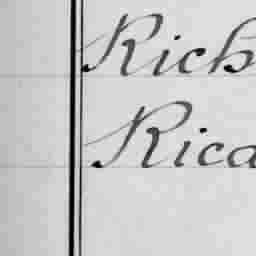 Rich
Rica